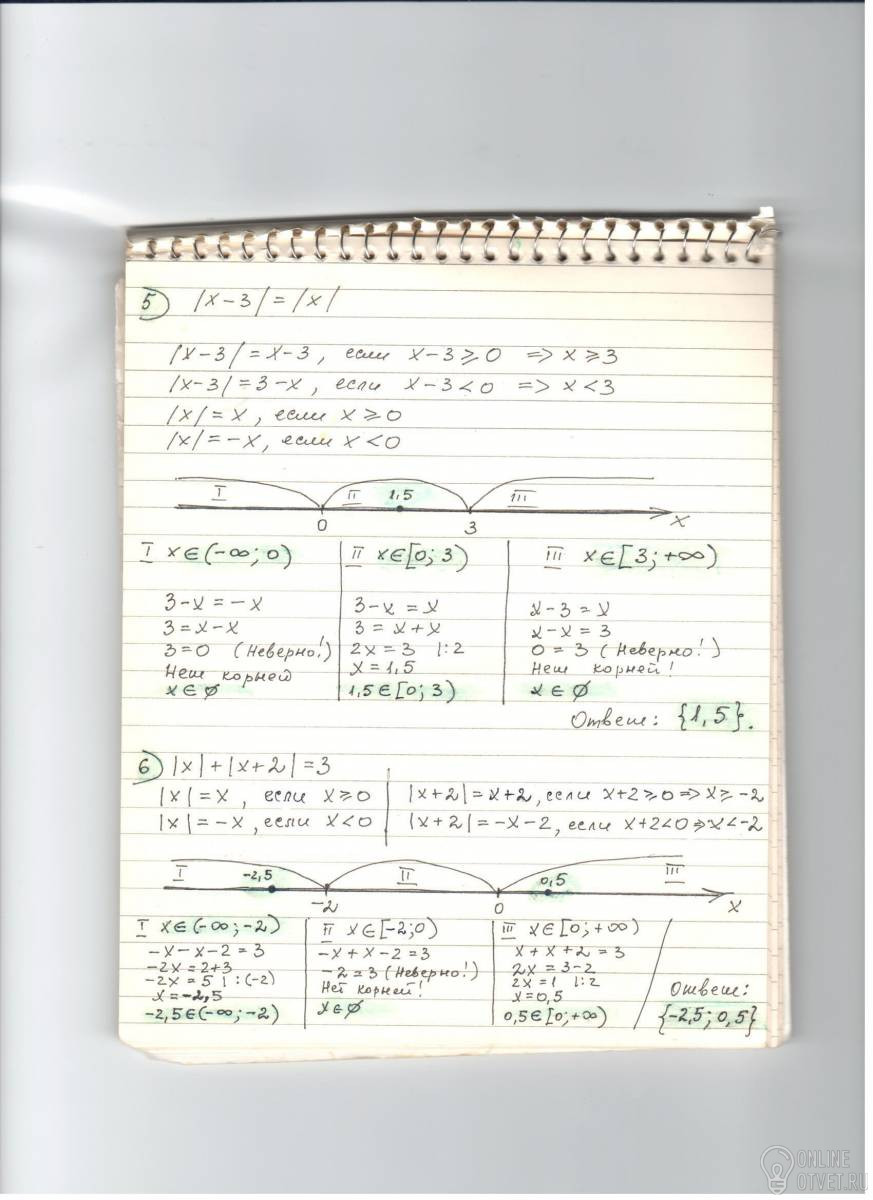 5) |x-3| = |x|
|x-3| = x-3, если x-3⩾0 => x⩾3
|x-3| = 3-x, если x-3<0 => x<3
|x| = x, если x⩾0
|x| = -x, если x<0
I II 1,5 III
0 3 x
I x∈(-∞; 0)
3-x = -x
3 = x-x
3=0 (Неверно!)
Нет корней
x∈∅
II x∈[0; 3)
3-x = x
3 = x+x
2x = 3 |:2
x = 1,5
1,5∈[0; 3)
III x∈[3; +∞)
x-3 = x
x-x = 3
0 = 3 (Неверно!)
Нет корней!
x∈∅
Ответ: {1,5}.
6) |x| + |x+2| = 3
|x| = x, если x⩾0
|x| = -x, если x<0
|x+2| = x+2, если x+2⩾0 => x⩾-2
|x+2| = -x-2, если x+2<0 => x<-2
I -2,5 II 0,5 III
-2 0 x
I x∈(-∞; -2)
-x-x-2 = 3
-2x = 2+3
-2x = 5 | :(-2)
x = -2,5
-2,5∈(-∞; -2)
II x∈[-2; 0)
-x+x-2 = 3
-2 = 3 (Неверно!)
Нет корней!
x∈∅
III x∈[0; +∞)
x+x+2 = 3
2x = 3-2
2x = 1 |:2
x = 0,5
0,5∈[0; +∞)
Ответ:
{-2,5; 0,5}
ONLINE
OTVET.RU